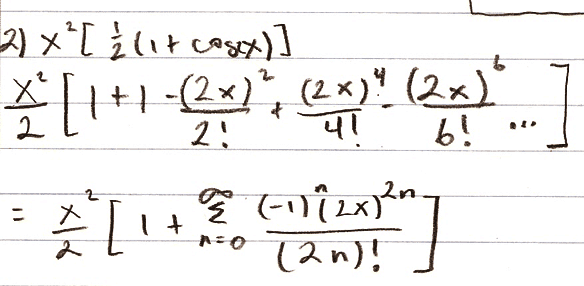 2) x² [ ½ (1 + cos(x) ]
x²/2 [ 1 + 1 - (2x)²/2! + (2x)⁴/4! - (2x)⁶/6! ... ]
= x²/2 [ 1 + ∞ Σ n=0 (-1)ⁿ(2x)²ⁿ/(2n)! ]